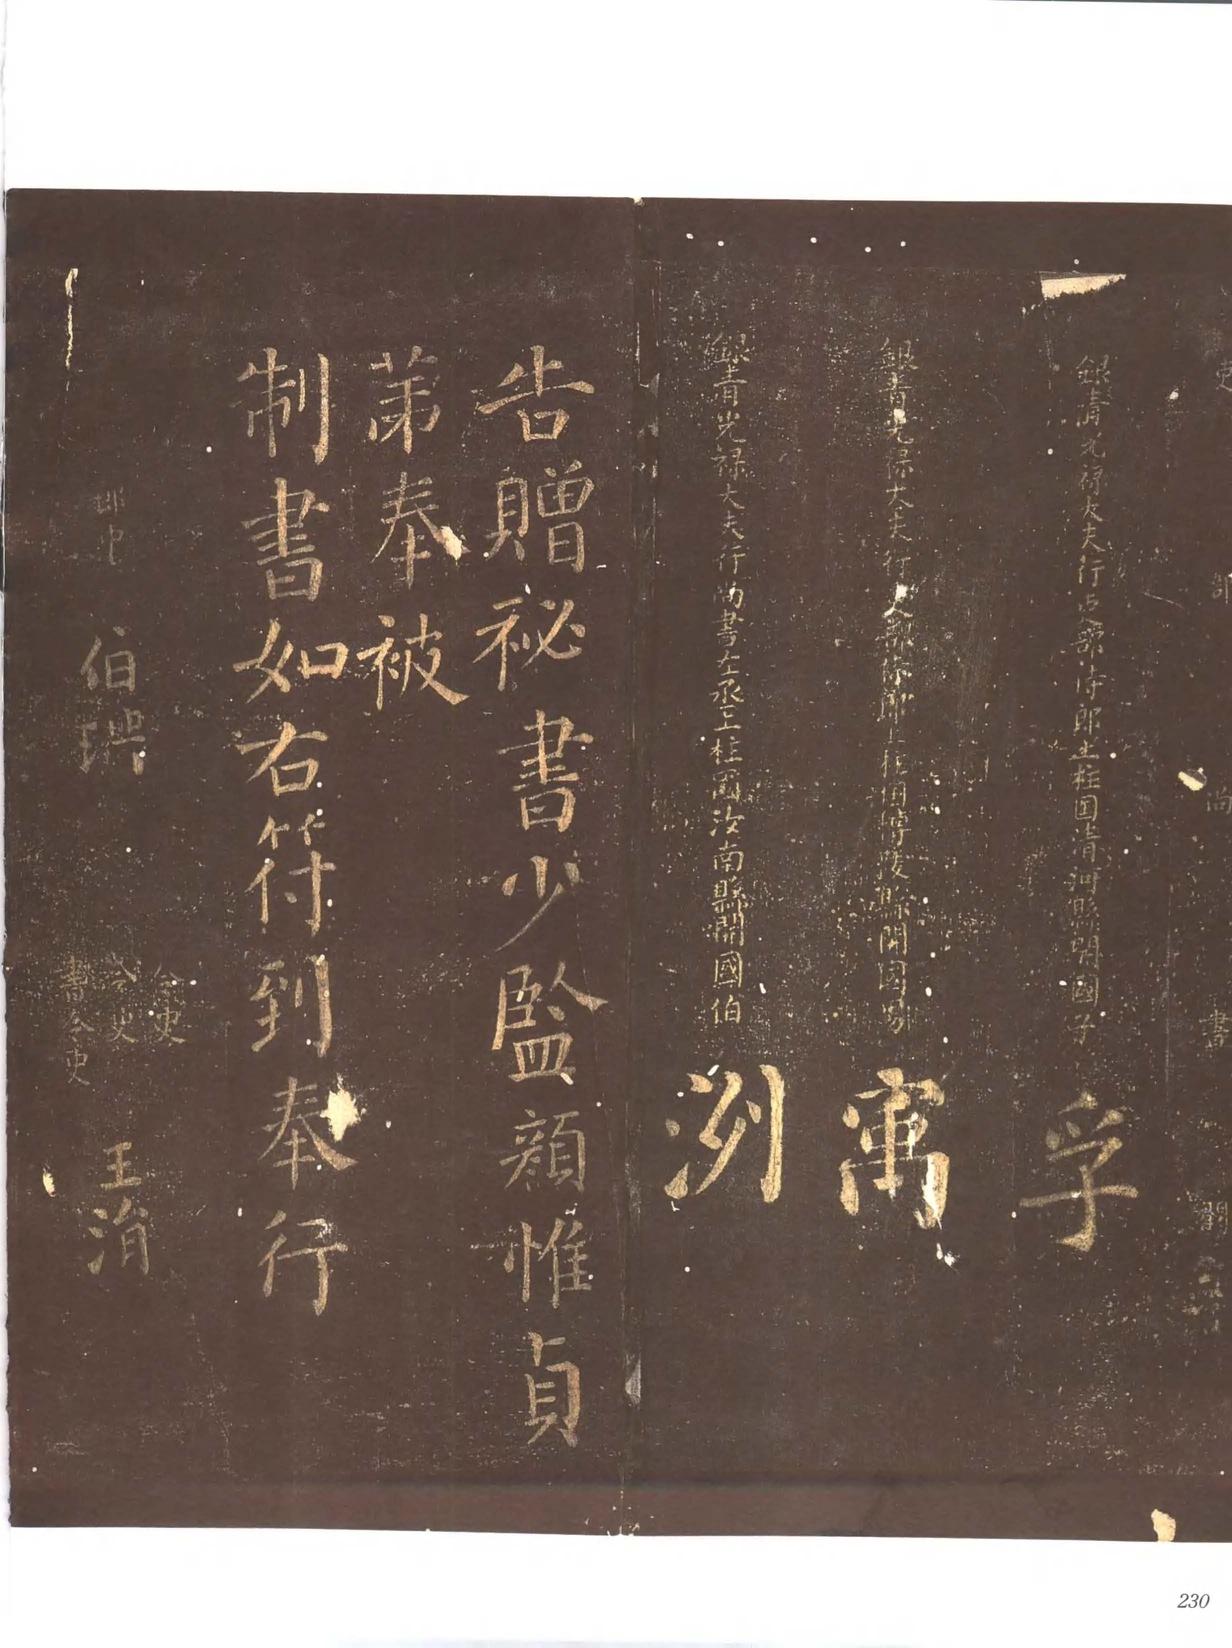 吏部尚書闕
銀青光禄大夫行吏部侍郎上柱国清河縣開國子
孚
銀青光禄大夫行吏部侍郎上柱國博陵縣開國男
寓
銀青光禄大夫行尚書左丞上柱國汝南縣開國伯
洌
告贈祕書少監顔惟貞
苐奉被
制書如右符到奉行
郎中
伯璵
令史
令史
書令史
王涓
230